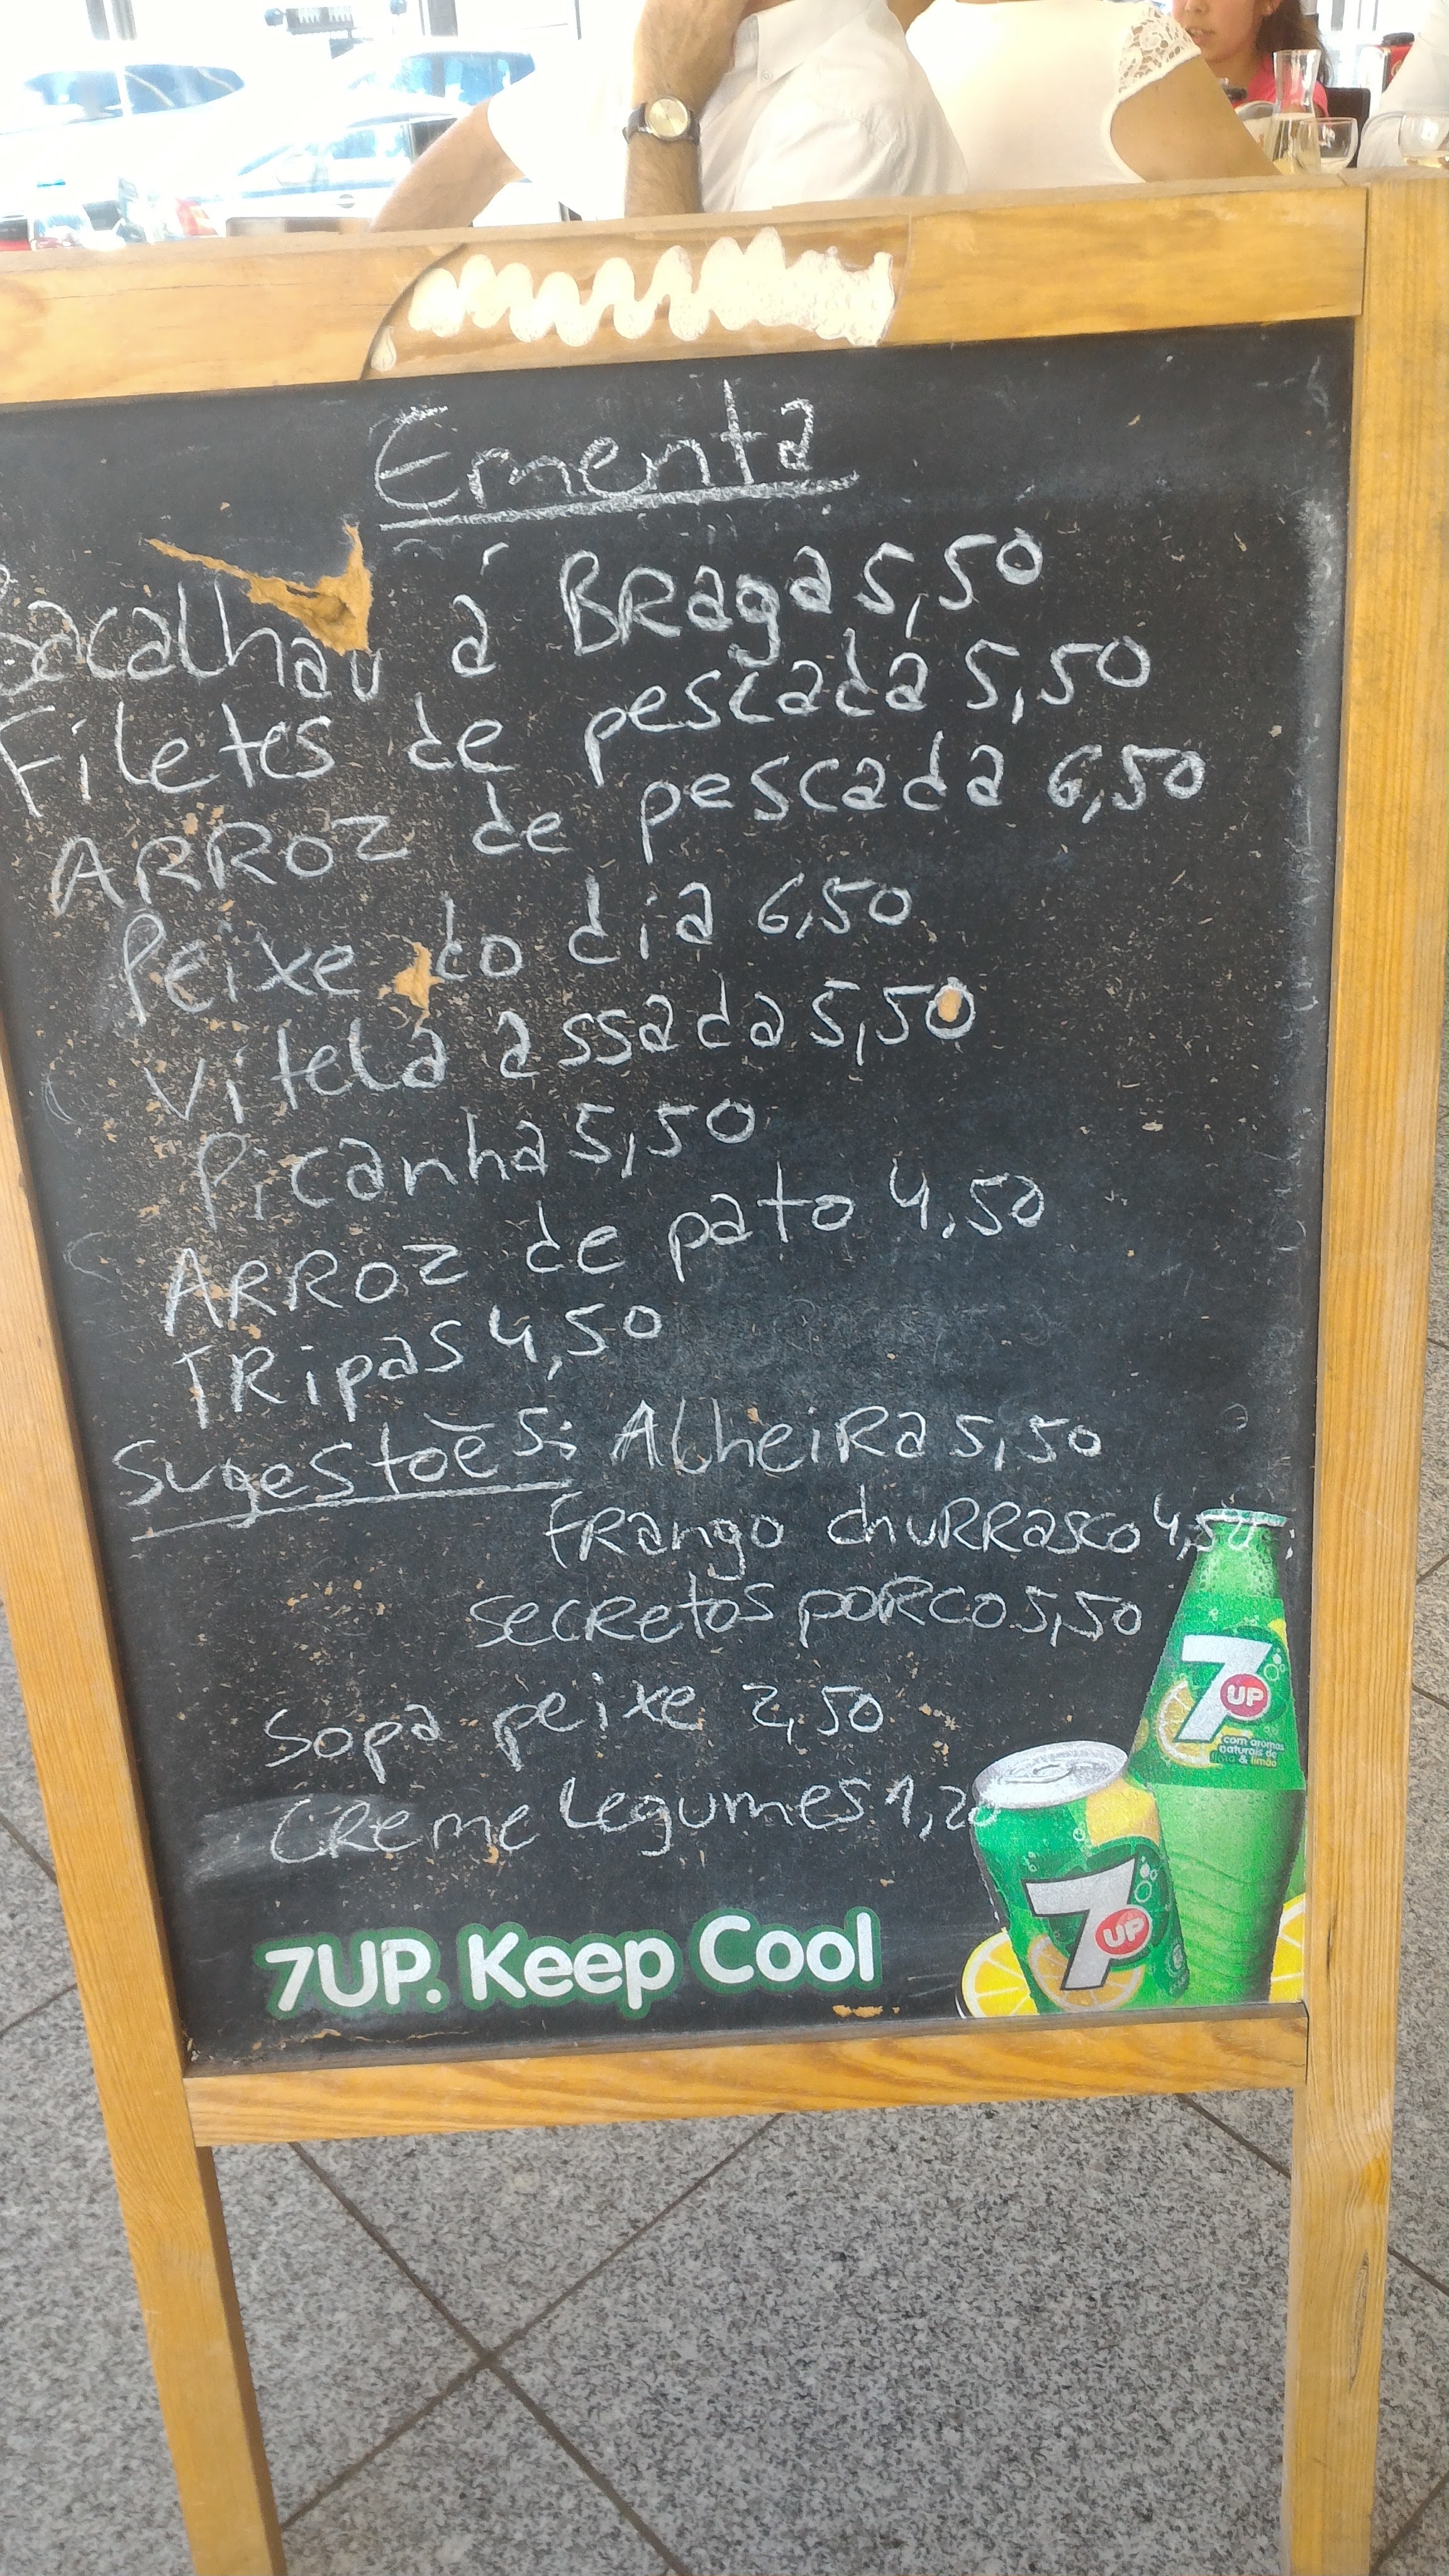 Ementa
Bacalhau á Braga 5,50
Filetes de pescada 5,50
ARROZ de pescada 6,50
Peixe do dia 6,50
Vitela assada 5,50
Picanha 5,50
ARROZ de pato 4,50
TRipas 4,50
Sugestões: AlheiRa 5,50
fRango chuRRasco 4,50
secRetos poRco 5,50
Sopa peixe 2,50
CReme Legumes 1,20
7UP
com aromas
naturais de
lima & limão
7UP
7UP. Keep Cool